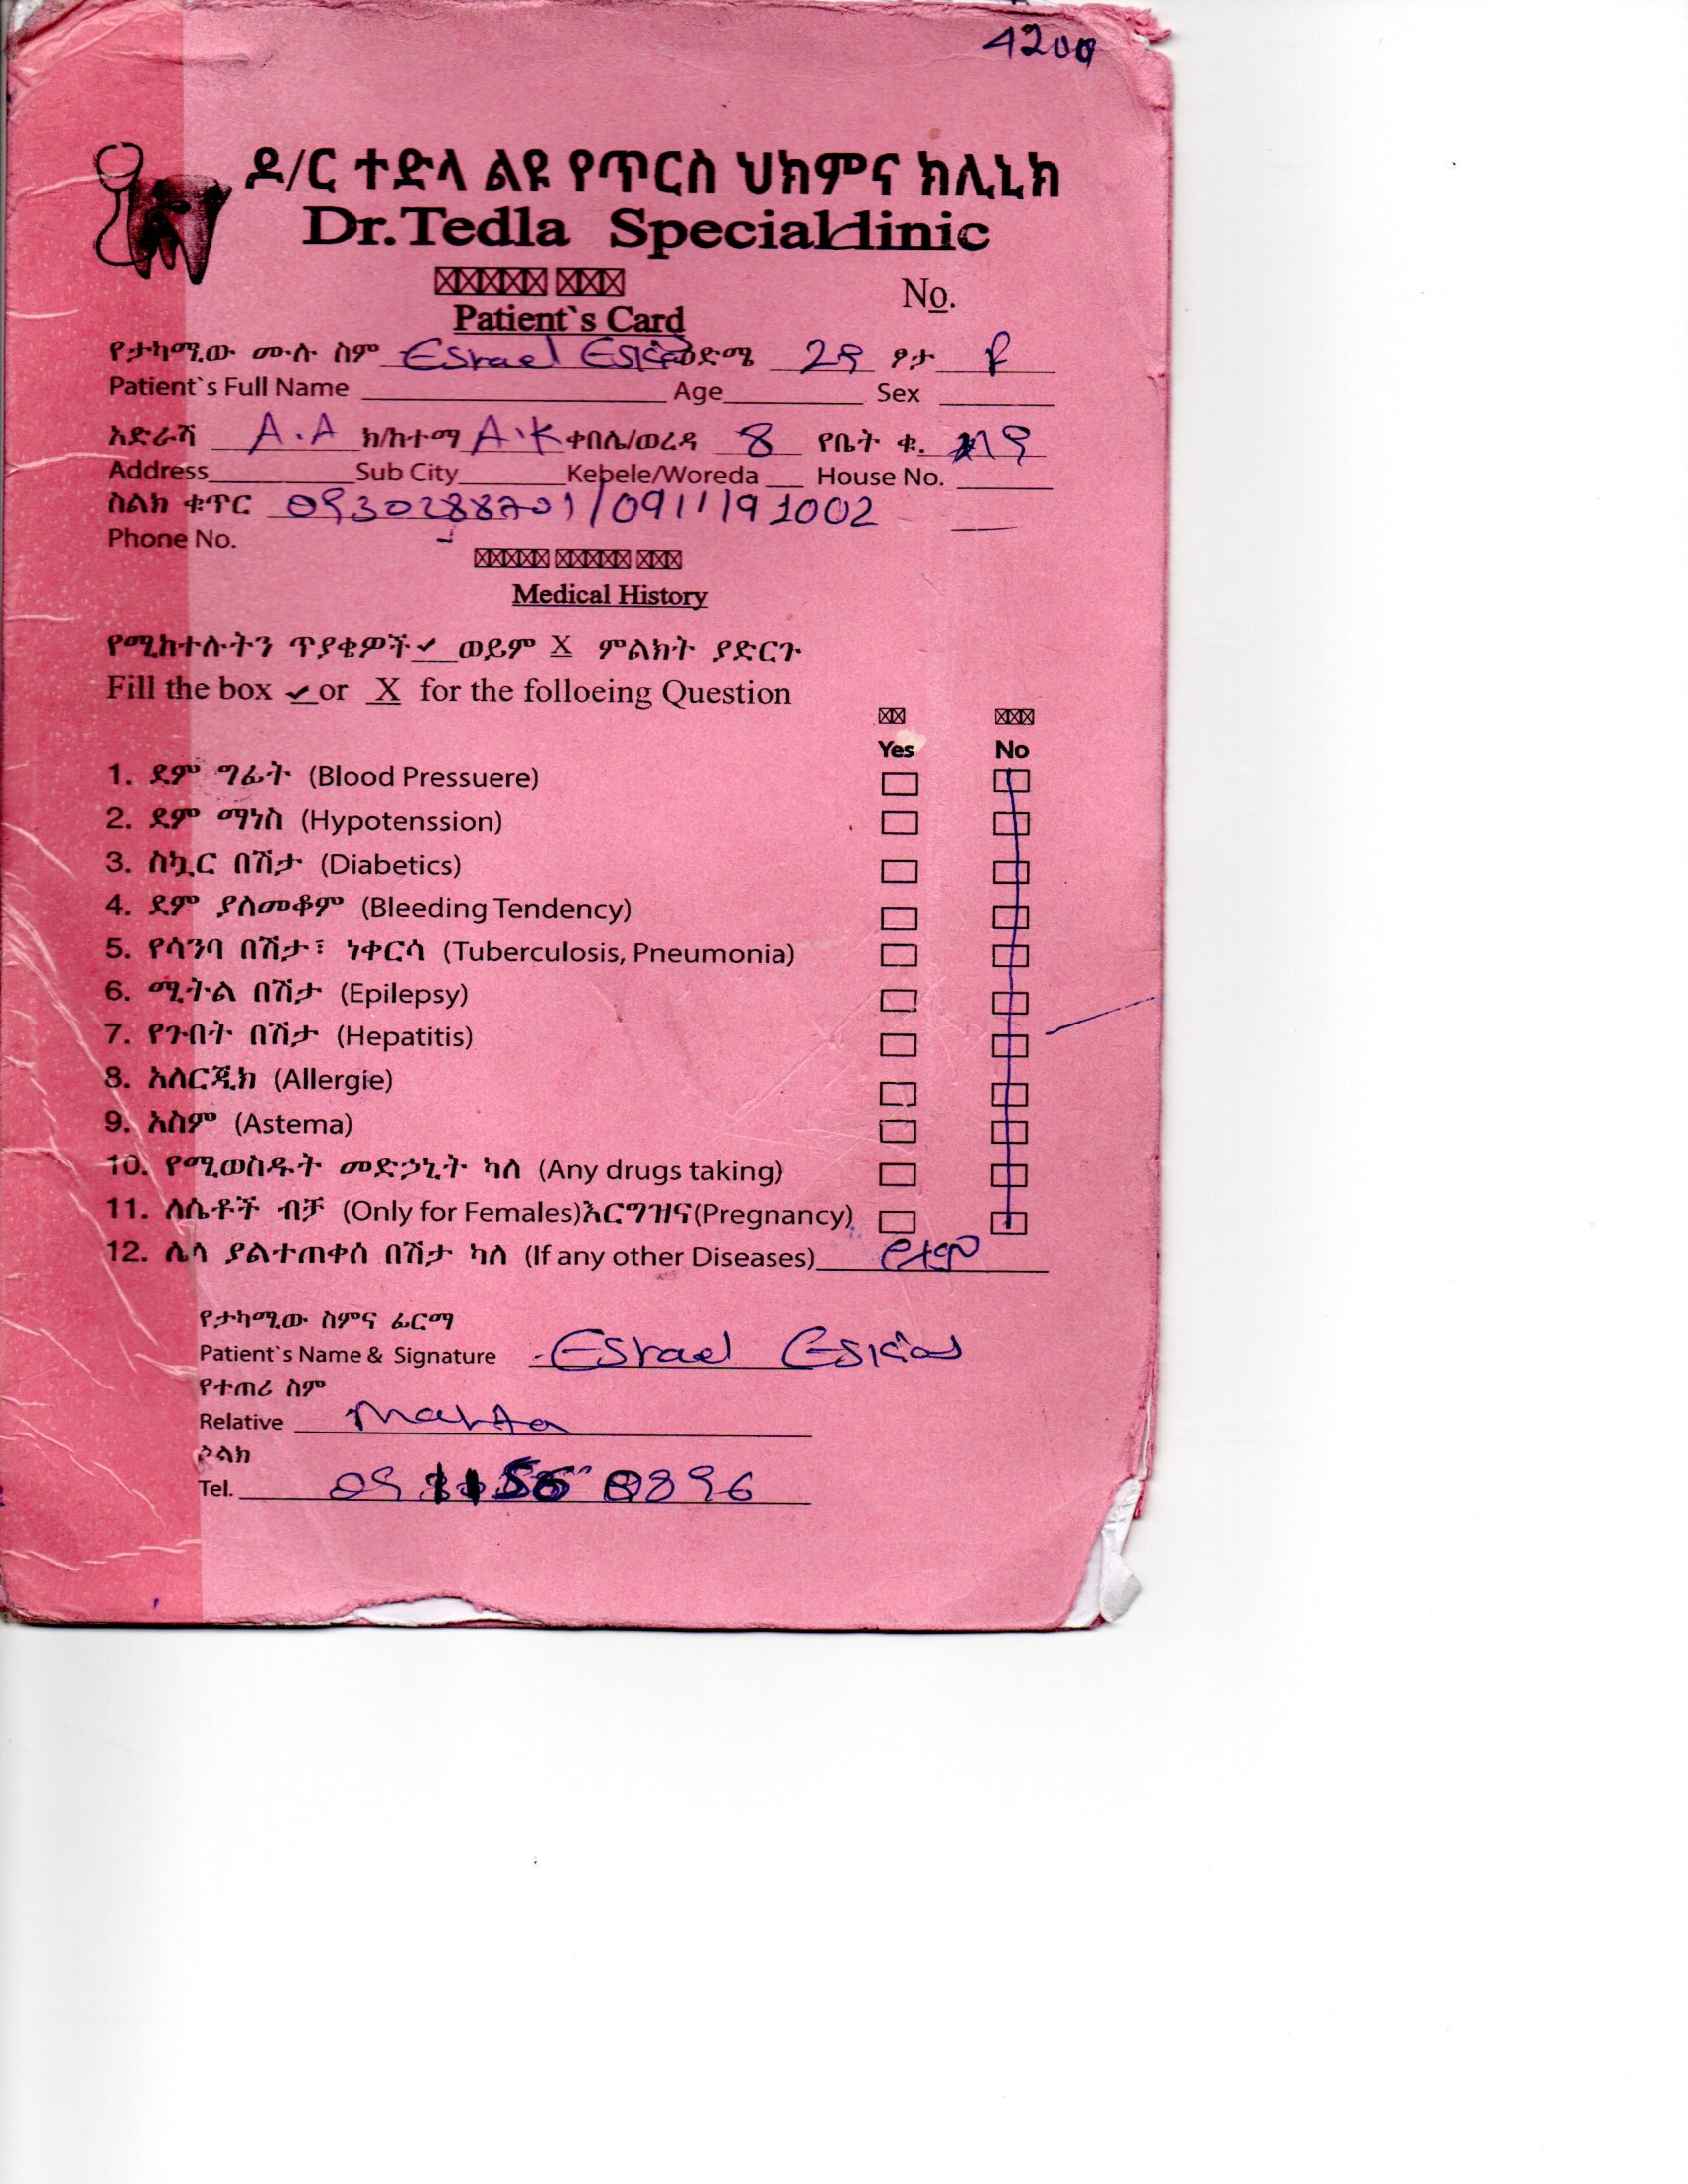 4200
ዶ/ር ተድላ ልዩ የጥርስ ህክምና ክሊኒክ
Dr.Tedla Specialclinic
No.
Patient`s Card
የታካሚው ሙሉ ስም Esrael Eskias ዕድሜ 29 ፆታ F
Patient`s Full Name Age Sex
አድራሻ A.A ክ/ከተማ A.K ቀበሌ/ወረዳ 8 የቤት ቁ.
Address Sub City Kebele/Woreda House No.
ስልክ ቁጥር 0930288701/0911191002
Phone No.
Medical History
የሚከተሉትን ጥያቄዎች ✔ ወይም X ምልክት ያድርጉ
Fill the box ✔ or X for the folloeing Question
Yes No
1. ደም ግፊት (Blood Pressuere)
2. ደም ማነስ (Hypotenssion)
3. ስኳር በሽታ (Diabetics)
4. ደም ያለመቆም (Bleeding Tendency)
5. የሳንባ በሽታ፣ ነቀርሳ (Tuberculosis, Pneumonia)
6. ሚትል በሽታ (Epilepsy)
7. የጉበት በሽታ (Hepatitis)
8. አለርጂክ (Allergie)
9. አስም (Astema)
10. የሚወስዱት መድኃኒት ካለ (Any drugs taking)
11. ለሴቶች ብቻ (Only for Females)እርግዝና(Pregnancy)
12. ሌላ ያልተጠቀሰ በሽታ ካለ (If any other Diseases) የለም
የታካሚው ስምና ፊርማ
Patient`s Name & Signature Esrael Eskias
የተጠሪ ስም
Relative Marta
ስልክ
Tel.